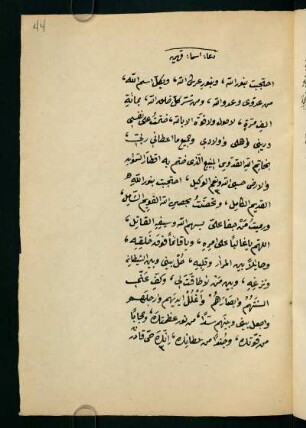 44
دعاء اسماء قهرية
احتجبت بنور الله، وبنور عرش الله، وبكل اسم الله،
من عدوى وعدو الله، ومن شر كل خلق الله، بمائة
الف مرة، لا حول ولا قوة الا بالله، ختمت على نفسى
ودينى واهلى واولادى وجميع ما اعطانى ربى،
بخاتم الله القدوس المنيع الذى ختم به اقطار السموات
والارض حسبى الله ونعم الوكيل، احتجبت بنور الله
القديم الكامل، وتحصنت بحصن الله القوى الشامل،
ورميت من بغا على بسهم الله وسيفه القاتل،
اللهم يا غالبا على امره، ويا قائما فوق خلقه،
وحائلا بين المرء وقلبه، حل بينى وبين الشيطان
ونزعه، وبين من لا طاقت لى، وكف عنى
السنتهم وابصارهم، واغلل ايديهم وارجلهم
واجعل بينى وبينهم سدا، من نور عظمتك، وحجابا
من قوتك، وجندا من سلطانك، انك حى قادر